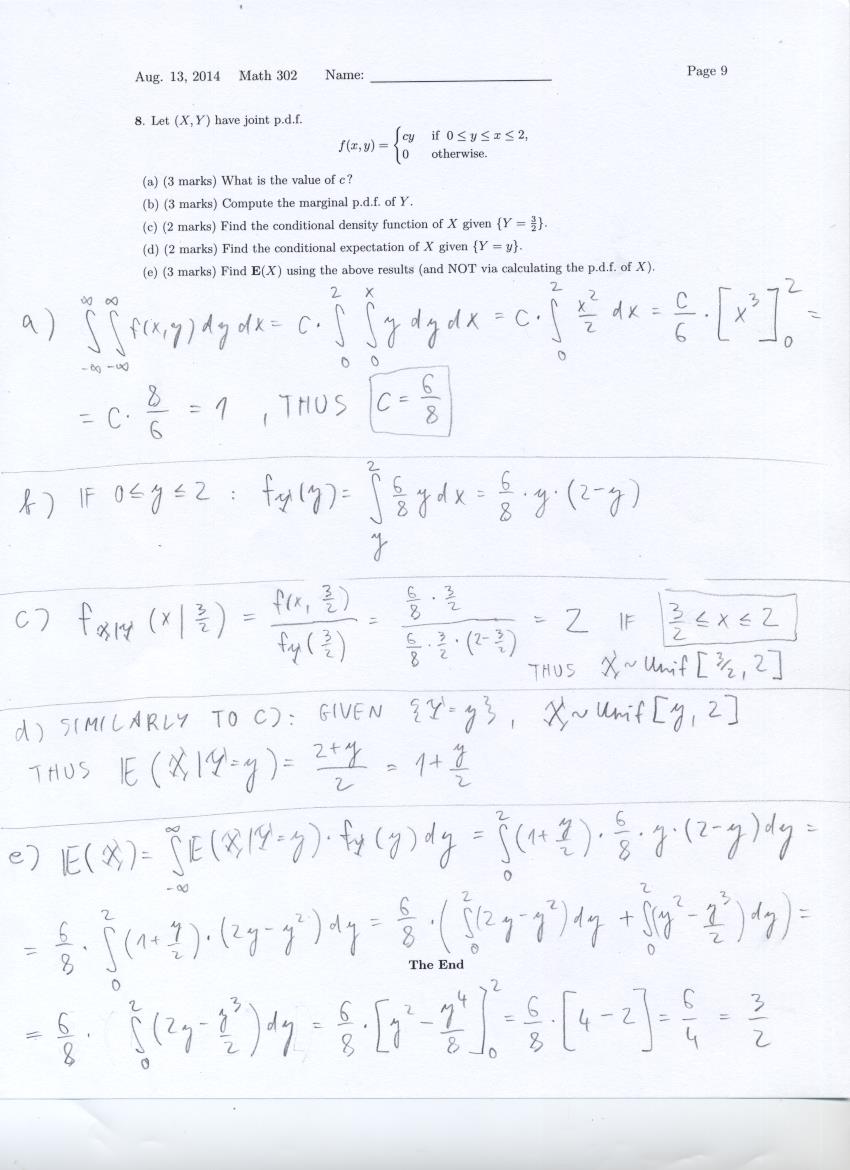 Aug. 13, 2014 Math 302 Name: ____________ Page 9
8. Let (X, Y) have joint p.d.f.
f(x, y) = { cy if 0 ≤ y ≤ x ≤ 2,
0 otherwise.
(a) (3 marks) What is the value of c?
(b) (3 marks) Compute the marginal p.d.f. of Y.
(c) (2 marks) Find the conditional density function of X given {Y = 3/2}.
(d) (2 marks) Find the conditional expectation of X given {Y = y}.
(e) (3 marks) Find E(X) using the above results (and NOT via calculating the p.d.f. of X).
a) ∫_{-∞}^{∞} ∫_{-∞}^{∞} f(x,y) dy dx = C · ∫_0^2 ∫_0^x y dy dx = C · ∫_0^2 x²/2 dx = C/6 · [x³]_0^2 =
= C · 8/6 = 1 , THUS C = 6/8
b) IF 0 ≤ y ≤ 2 : f_Y(y) = ∫_y^2 6/8 y dx = 6/8 · y · (2-y)
c) f_{X|Y} (x | 3/2) = f(x, 3/2) / f_Y(3/2) = (6/8 · 3/2) / (6/8 · 3/2 · (2 - 3/2)) = 2 IF 3/2 ≤ x ≤ 2
THUS X ~ Unif [3/2, 2]
d) SIMILARLY TO C): GIVEN {Y = y}, X ~ Unif [y, 2]
THUS E(X | Y = y) = (2+y)/2 = 1 + y/2
e) E(X) = ∫_{-∞}^{∞} E(X | Y = y) · f_Y(y) dy = ∫_0^2 (1 + y/2) · 6/8 · y · (2-y) dy =
= 6/8 · ∫_0^2 (1 + y/2) · (2y - y²) dy = 6/8 · ( ∫_0^2 (2y - y²) dy + ∫_0^2 (y² - y³/2) dy ) =
The End
= 6/8 · ∫_0^2 (2y - y³/2) dy = 6/8 · [y² - y⁴/8]_0^2 = 6/8 · [4 - 2] = 6/4 = 3/2